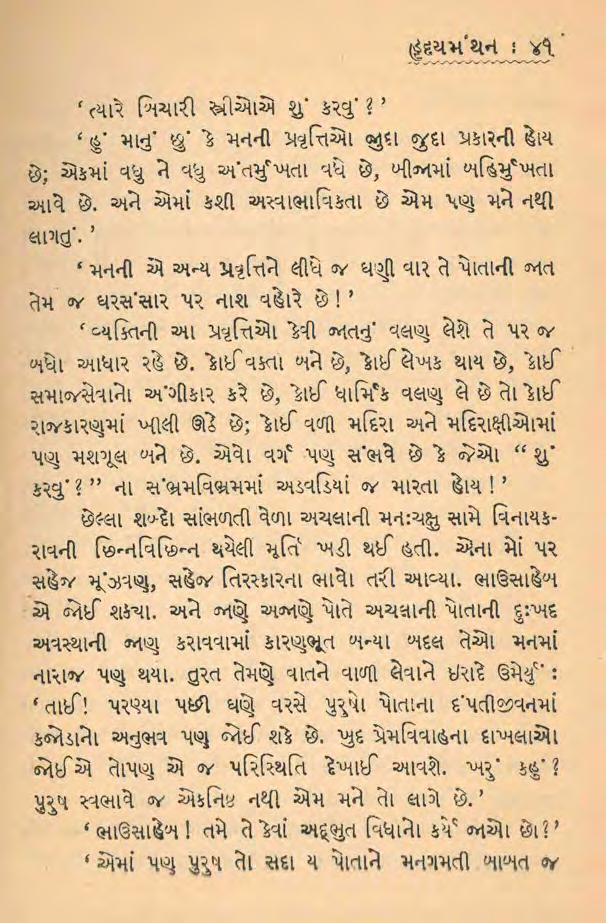 હૃદયમંથન : ૪૧
‘ ત્યારે બિચારી સ્ત્રીઓએ શું કરવું ? ’
‘ હું માનું છું કે મનની પ્રવૃત્તિઓ જુદા જુદા પ્રકારની હોય
છે; એકમાં વધુ ને વધુ અંતર્મુખતા વધે છે, બીજામાં બહિર્મુખતા
આવે છે. અને એમાં કશી અસ્વાભાવિકતા છે એમ પણ મને નથી
લાગતું. ’
‘ મનની એ અન્ય પ્રવૃત્તિને લીધે જ ઘણી વાર તે પોતાની જાત
તેમ જ ઘરસંસાર પર નાશ વહોરે છે ! ’
‘ વ્યક્તિની આ પ્રવૃત્તિઓ કેવી જાતનું વલણ લેશે તે પર જ
બધો આધાર રહે છે. કોઈ વક્તા બને છે, કોઈ લેખક થાય છે, કોઈ
સમાજસેવાનો અંગીકાર કરે છે, કોઈ ધાર્મિક વલણ લે છે તો કોઈ
રાજકારણમાં ખીલી ઊઠે છે; કોઈ વળી મદિરા અને મદિરાક્ષીઓમાં
પણ મશગૂલ બને છે. એવો વર્ગ પણ સંભવે છે કે જેઓ “ શું
કરવું ? ” ના સંભ્રમવિભ્રમમાં અડવડિયાં જ મારતા હોય ! ’
છેલ્લા શબ્દો સાંભળતી વેળા અચલાની મનઃચક્ષુ સામે વિનાયક-
રાવની છિન્નવિછિન્ન થયેલી મૂર્તિ ખડી થઈ હતી. એના મોં પર
સહેજ મૂંઝવણ, સહેજ તિરસ્કારના ભાવો તરી આવ્યા. ભાઉસાહેબ
એ જોઈ શક્યા. અને જાણે અજાણે પોતે અચલાની પોતાની દુઃખદ
અવસ્થાની જાણ કરાવવામાં કારણભૂત બન્યા બદલ તેઓ મનમાં
નારાજ પણ થયા. તુરત તેમણે વાતને વાળી લેવાને ઇરાદે ઉમેર્યું :
‘ તાઈ ! પરણ્યા પછી ઘણે વરસે પુરુષો પોતાના દંપતીજીવનમાં
કજોડાનો અનુભવ પણ જોઈ શકે છે. ખુદ પ્રેમવિવાહના દાખલાઓ
જોઈએ તોપણ એ જ પરિસ્થિતિ દેખાઈ આવશે. ખરું કહું ?
પુરુષ સ્વભાવે જ એકનિષ્ઠ નથી એમ મને તો લાગે છે. ’
‘ ભાઉસાહેબ ! તમે તે કેવાં અદ્ભુત વિધાનો કર્યે જાઓ છો ? ’
‘ એમાં પણ પુરુષ તો સદા ય પોતાને મનગમતી બાબત જ